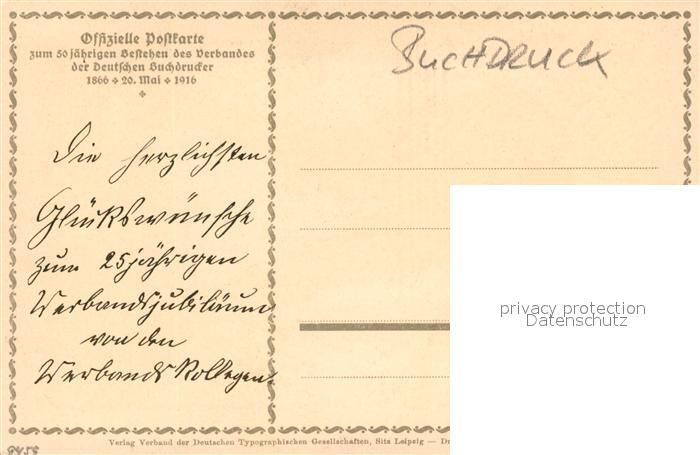 Offizielle Postkarte
zum 50 jährigen Bestehen des Verbandes
der Deutschen Buchdrucker
1866 + 20. Mai + 1916
Buchdruck
Die herzlichsten
Glückswünsche
zum 25 jährigen
Verbandsjubiläum
von den
Verbands Kollegen.
privacy protection
Datenschutz
Verlag Verband der Deutschen Typographischen Gesellschaften, Sitz Leipzig —